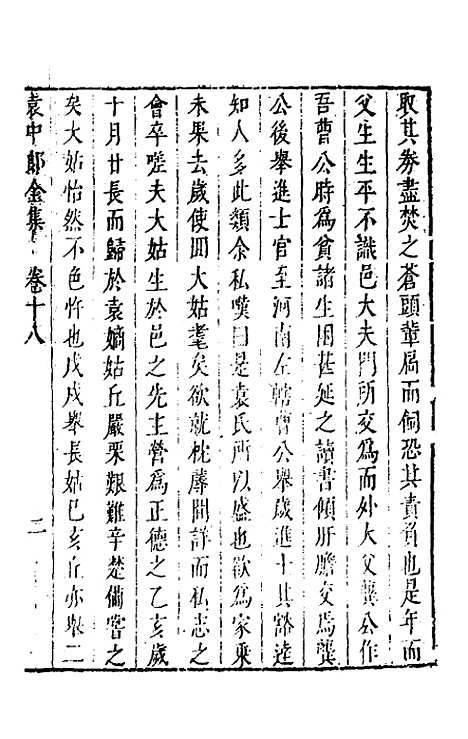 取其券盡焚之蒼頭輩扃而伺恐其責負也是年而
父生生平不識邑大夫門所交爲而外大父龔公作
吾曹公時爲貧諸生困甚延之讀書傾肝膽交焉龔
公後舉進士官至河南左轄曹公舉歲進士其豁達
知人多此類余私嘆曰是袁氏所以盛也欲爲家乘
未果去歲使回大姑耄矣欲就枕蓐間詳而私志之
會卒嗟夫大姑生於邑之先主營爲正德之乙亥歲
十月廿長而歸於袁嫡姑丘嚴栗艱難辛楚備嘗之
矣大姑怡然不色忤也戊戌舉長姑己亥丘亦舉二
袁中郎全集 卷十八 二